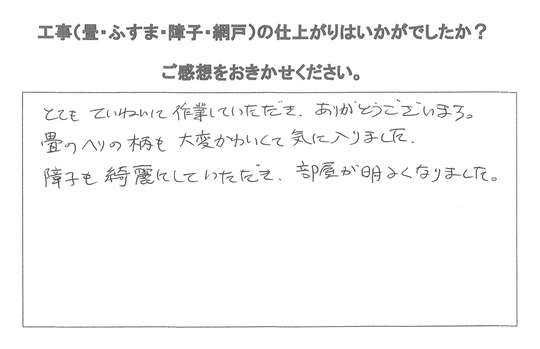 工事(畳・ふすま・障子・網戸)の仕上がりはいかがでしたか?
ご感想をおきかせください。
とても ていねいに 作業していただき、ありがとうございます。
畳のヘリの柄も 大変かわいくて 気に入りました。
障子も 綺麗にしていただき、部屋が明るくなりました。